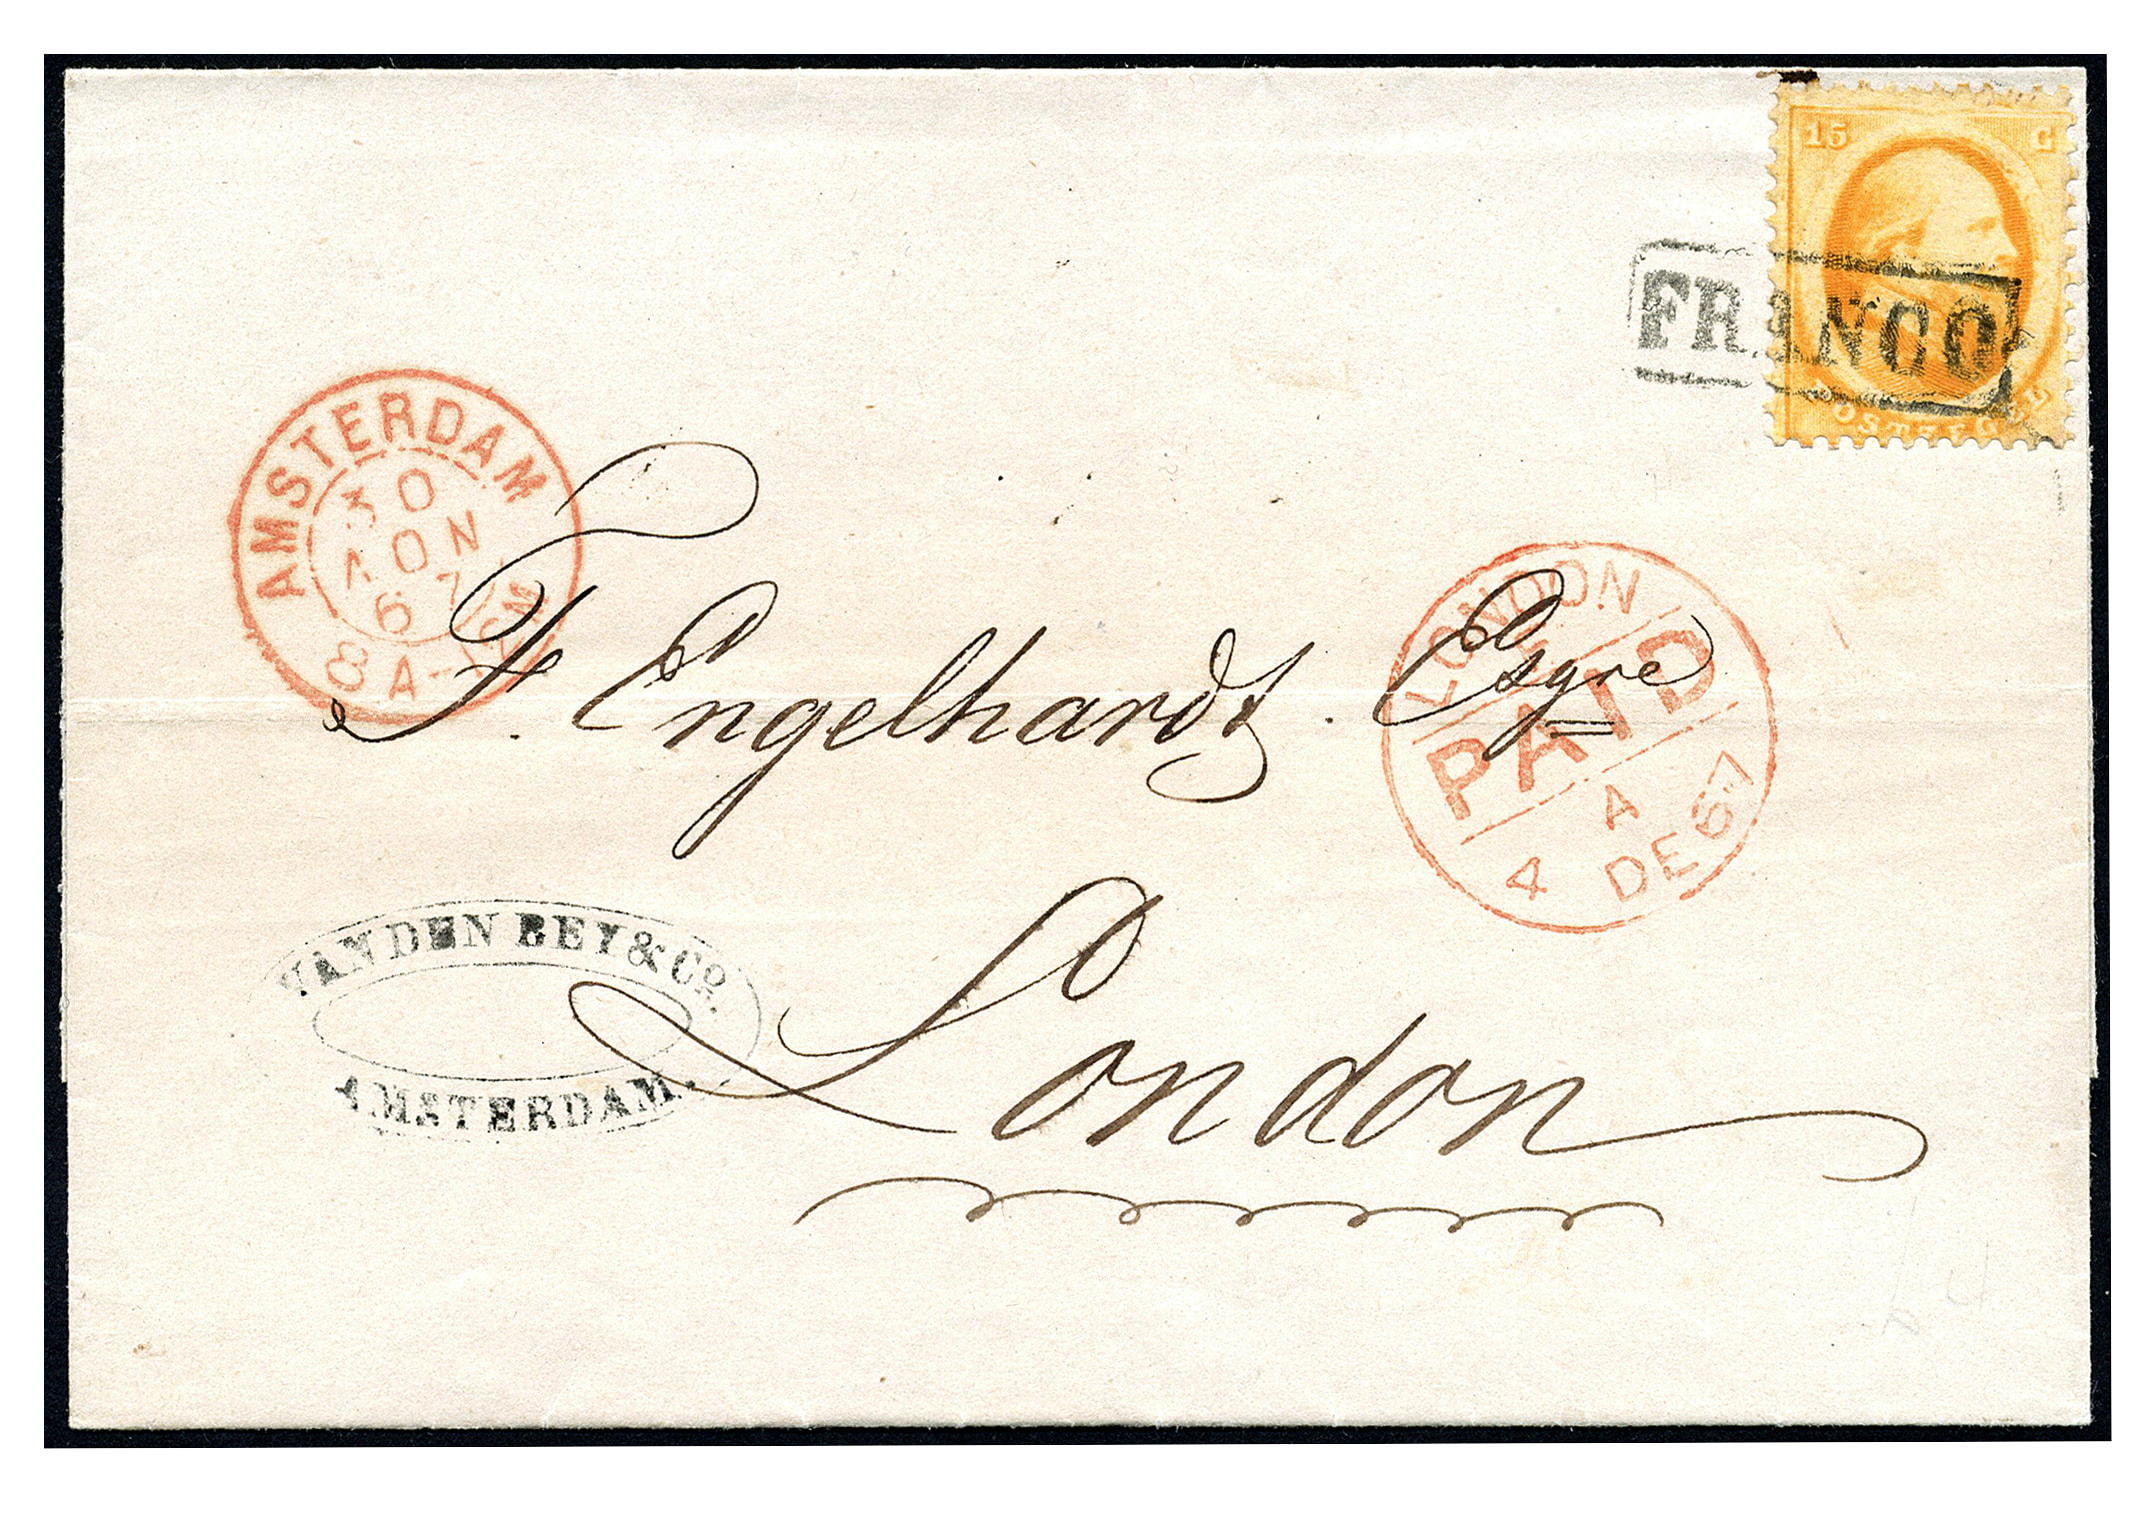 15 C
POSTZEGEL
FRANCO
AMSTERDAM
30
NOV
67
8A-12M
LONDON
PAID
A
4 DE 67
F. Engelhardt. Esqre
London
VAN DEN BEY & Co.
AMSTERDAM.